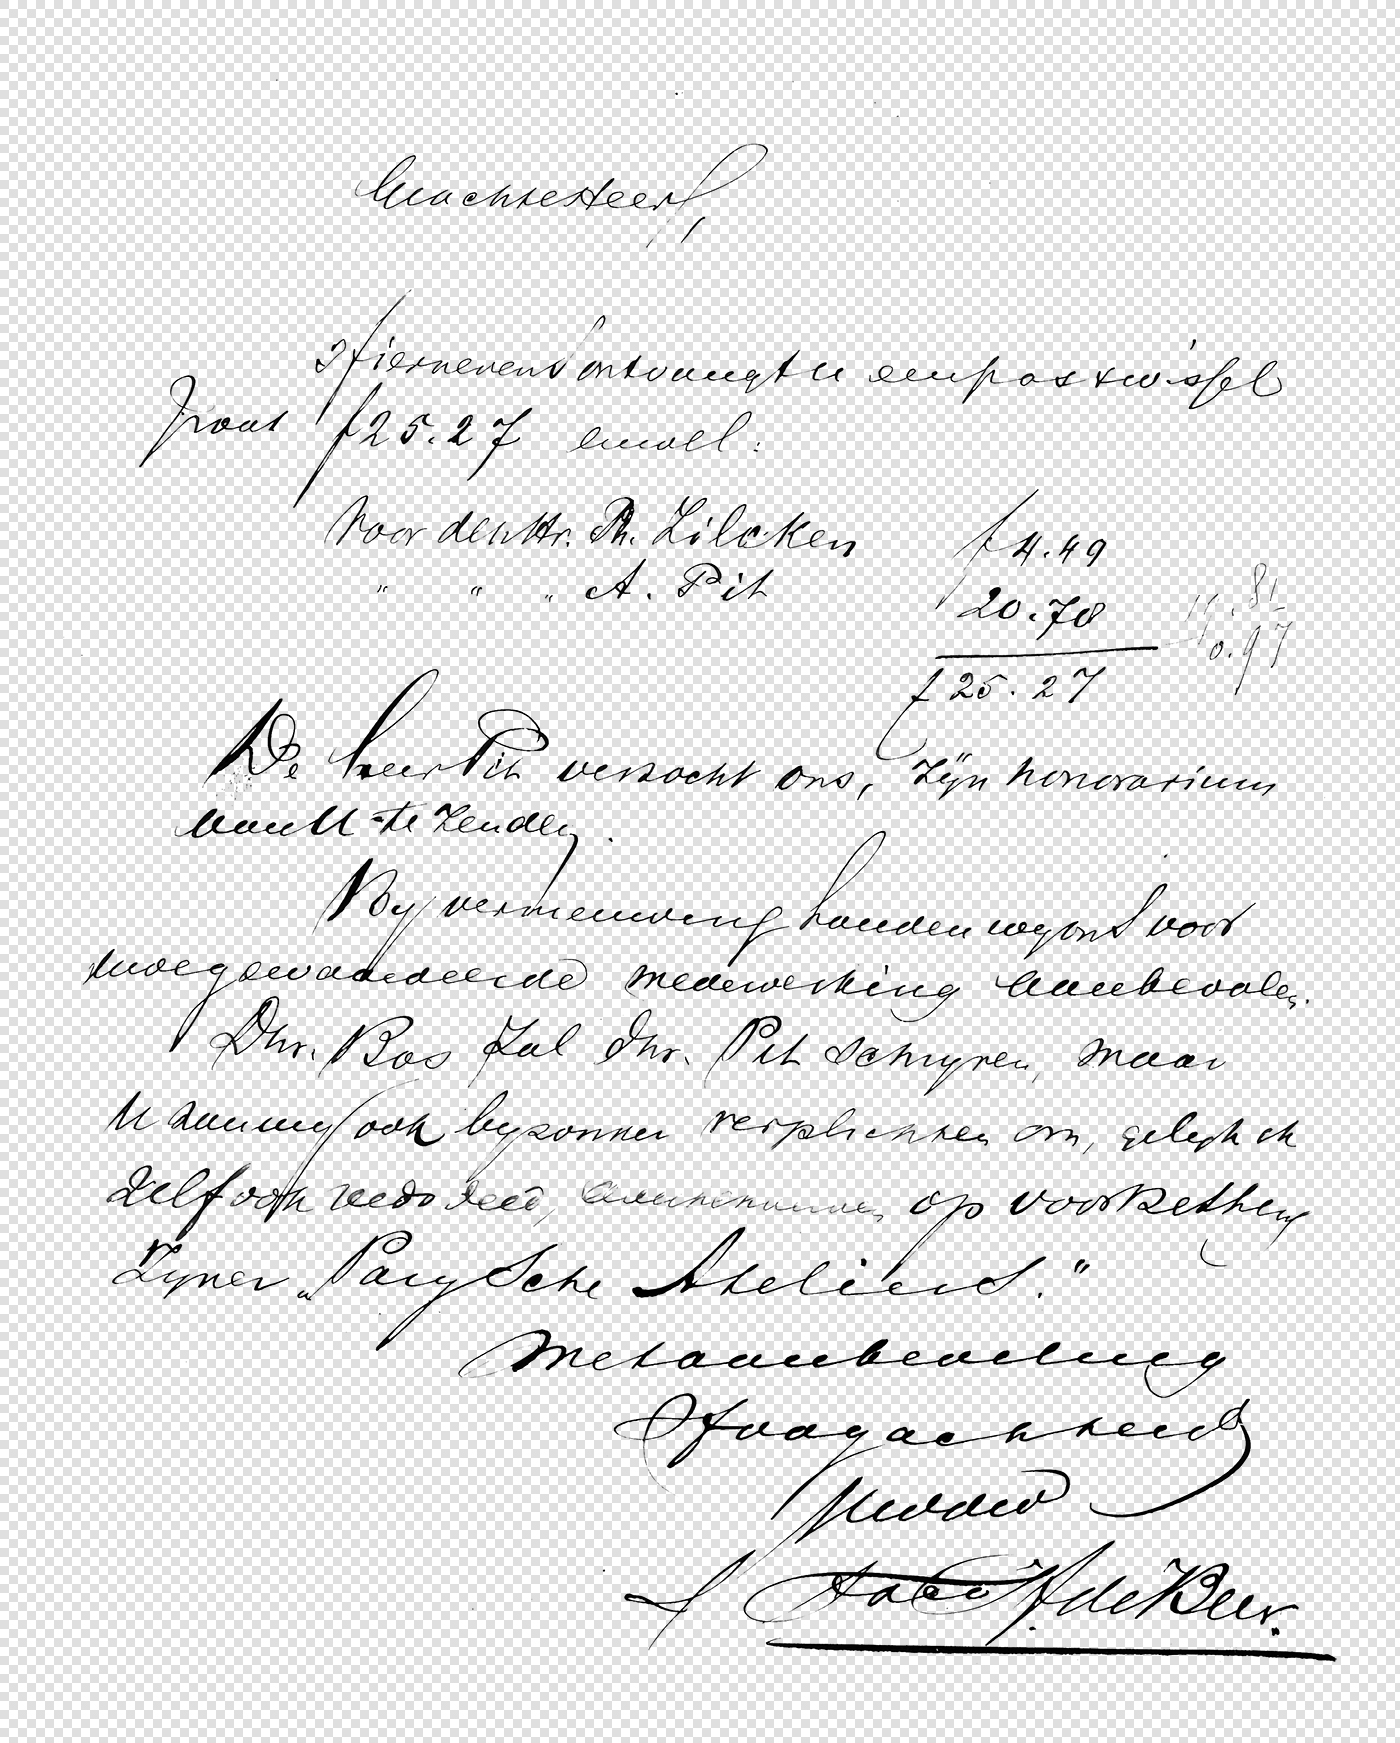 Geachte Heer,
Hiernevens ontvangt u een postwissel
groot f 25.27 en wel:
Voor den Hr. Ph. Zilcken f 4.49
" " " A. Pit 20.78
0.97
f 25.27
De heer Pit verzocht ons, zijn honorarium
aan U te zenden.
By vernieuwing houden wy ons voor
uwe gewaardeerde medewerking aanbevolen.
Dhr. Bos zal dhr. Pit schryven, maar
U zou my ook byzonder verplichten om, gelyk ik
zelf ook reeds deed, aan te op
zyner „Parysche Ateliers."
Met aanbeveling
Hoogachtend
de Beer.